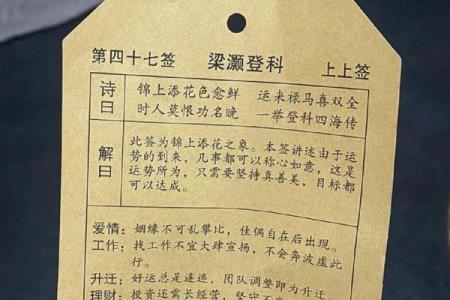 第四十七签 梁灏登科 上上签
诗曰
锦上添花色愈鲜 运来禄马喜双全
时人莫恨功名晚 一举登科四海传
解曰
此签为锦上添花之象。本签讲述由于运
势的到来，几事都可以称心如意，这是
运势所为，只需要坚持真善美，目标都
可以达成。
爱情：姻缘不可乱攀比，佳偶自在后出现。
工作：找工作不宜大肆宣扬，不会奔波虚此
行。
升迁：好运总是连连，团队调整即为升迁
理财：投资还需长经营，坚守不